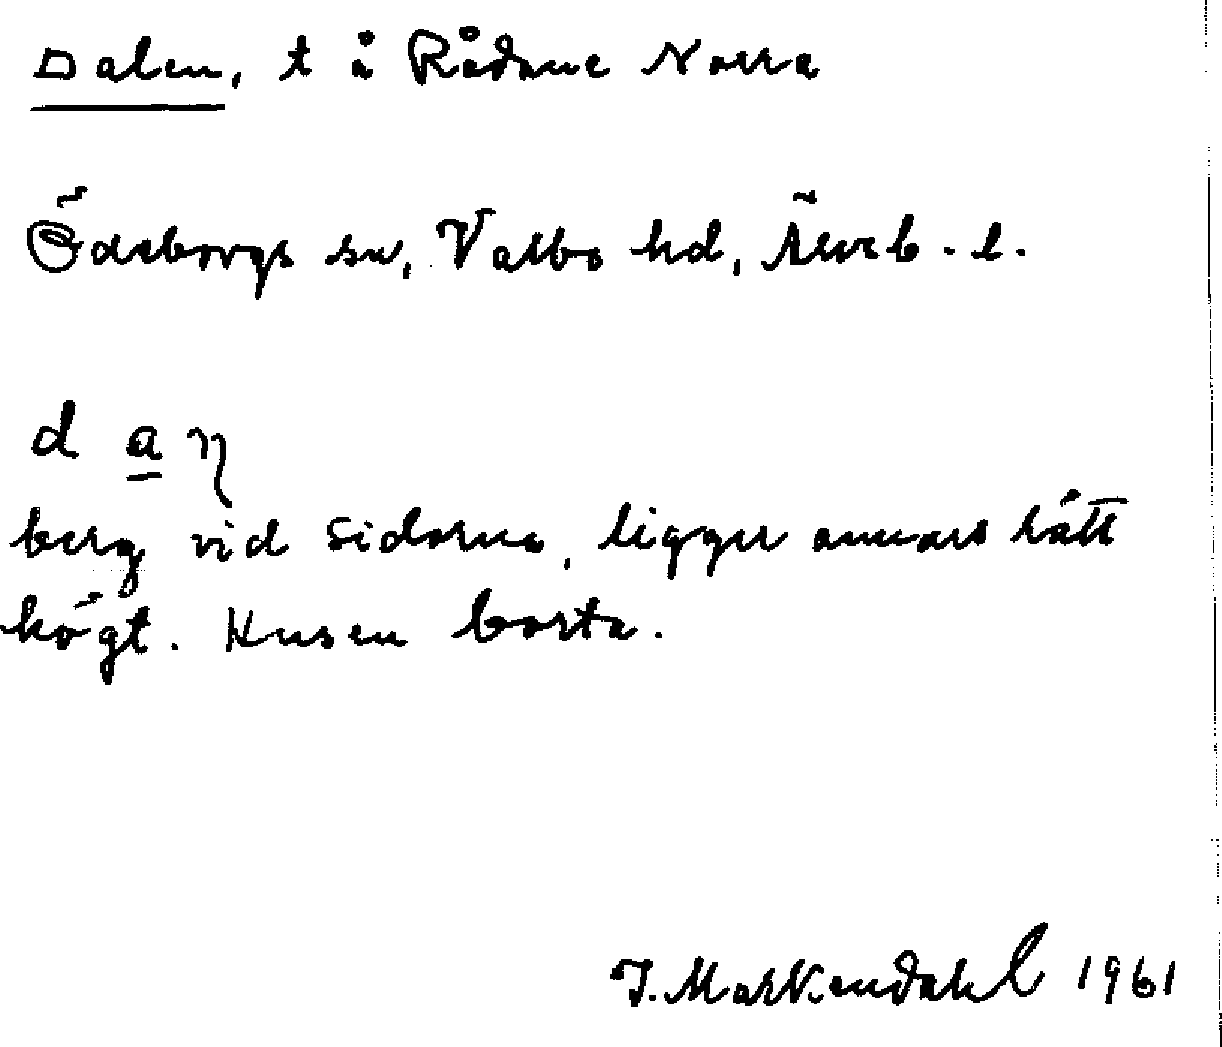 Dalen, t å Rådane Norra
Ödeborgs sn, Valbo hd, Älvsb. l.
d a η
berg vid sidorna, ligger annars lätt
högt. Husen borta.
J. Markendahl 1961